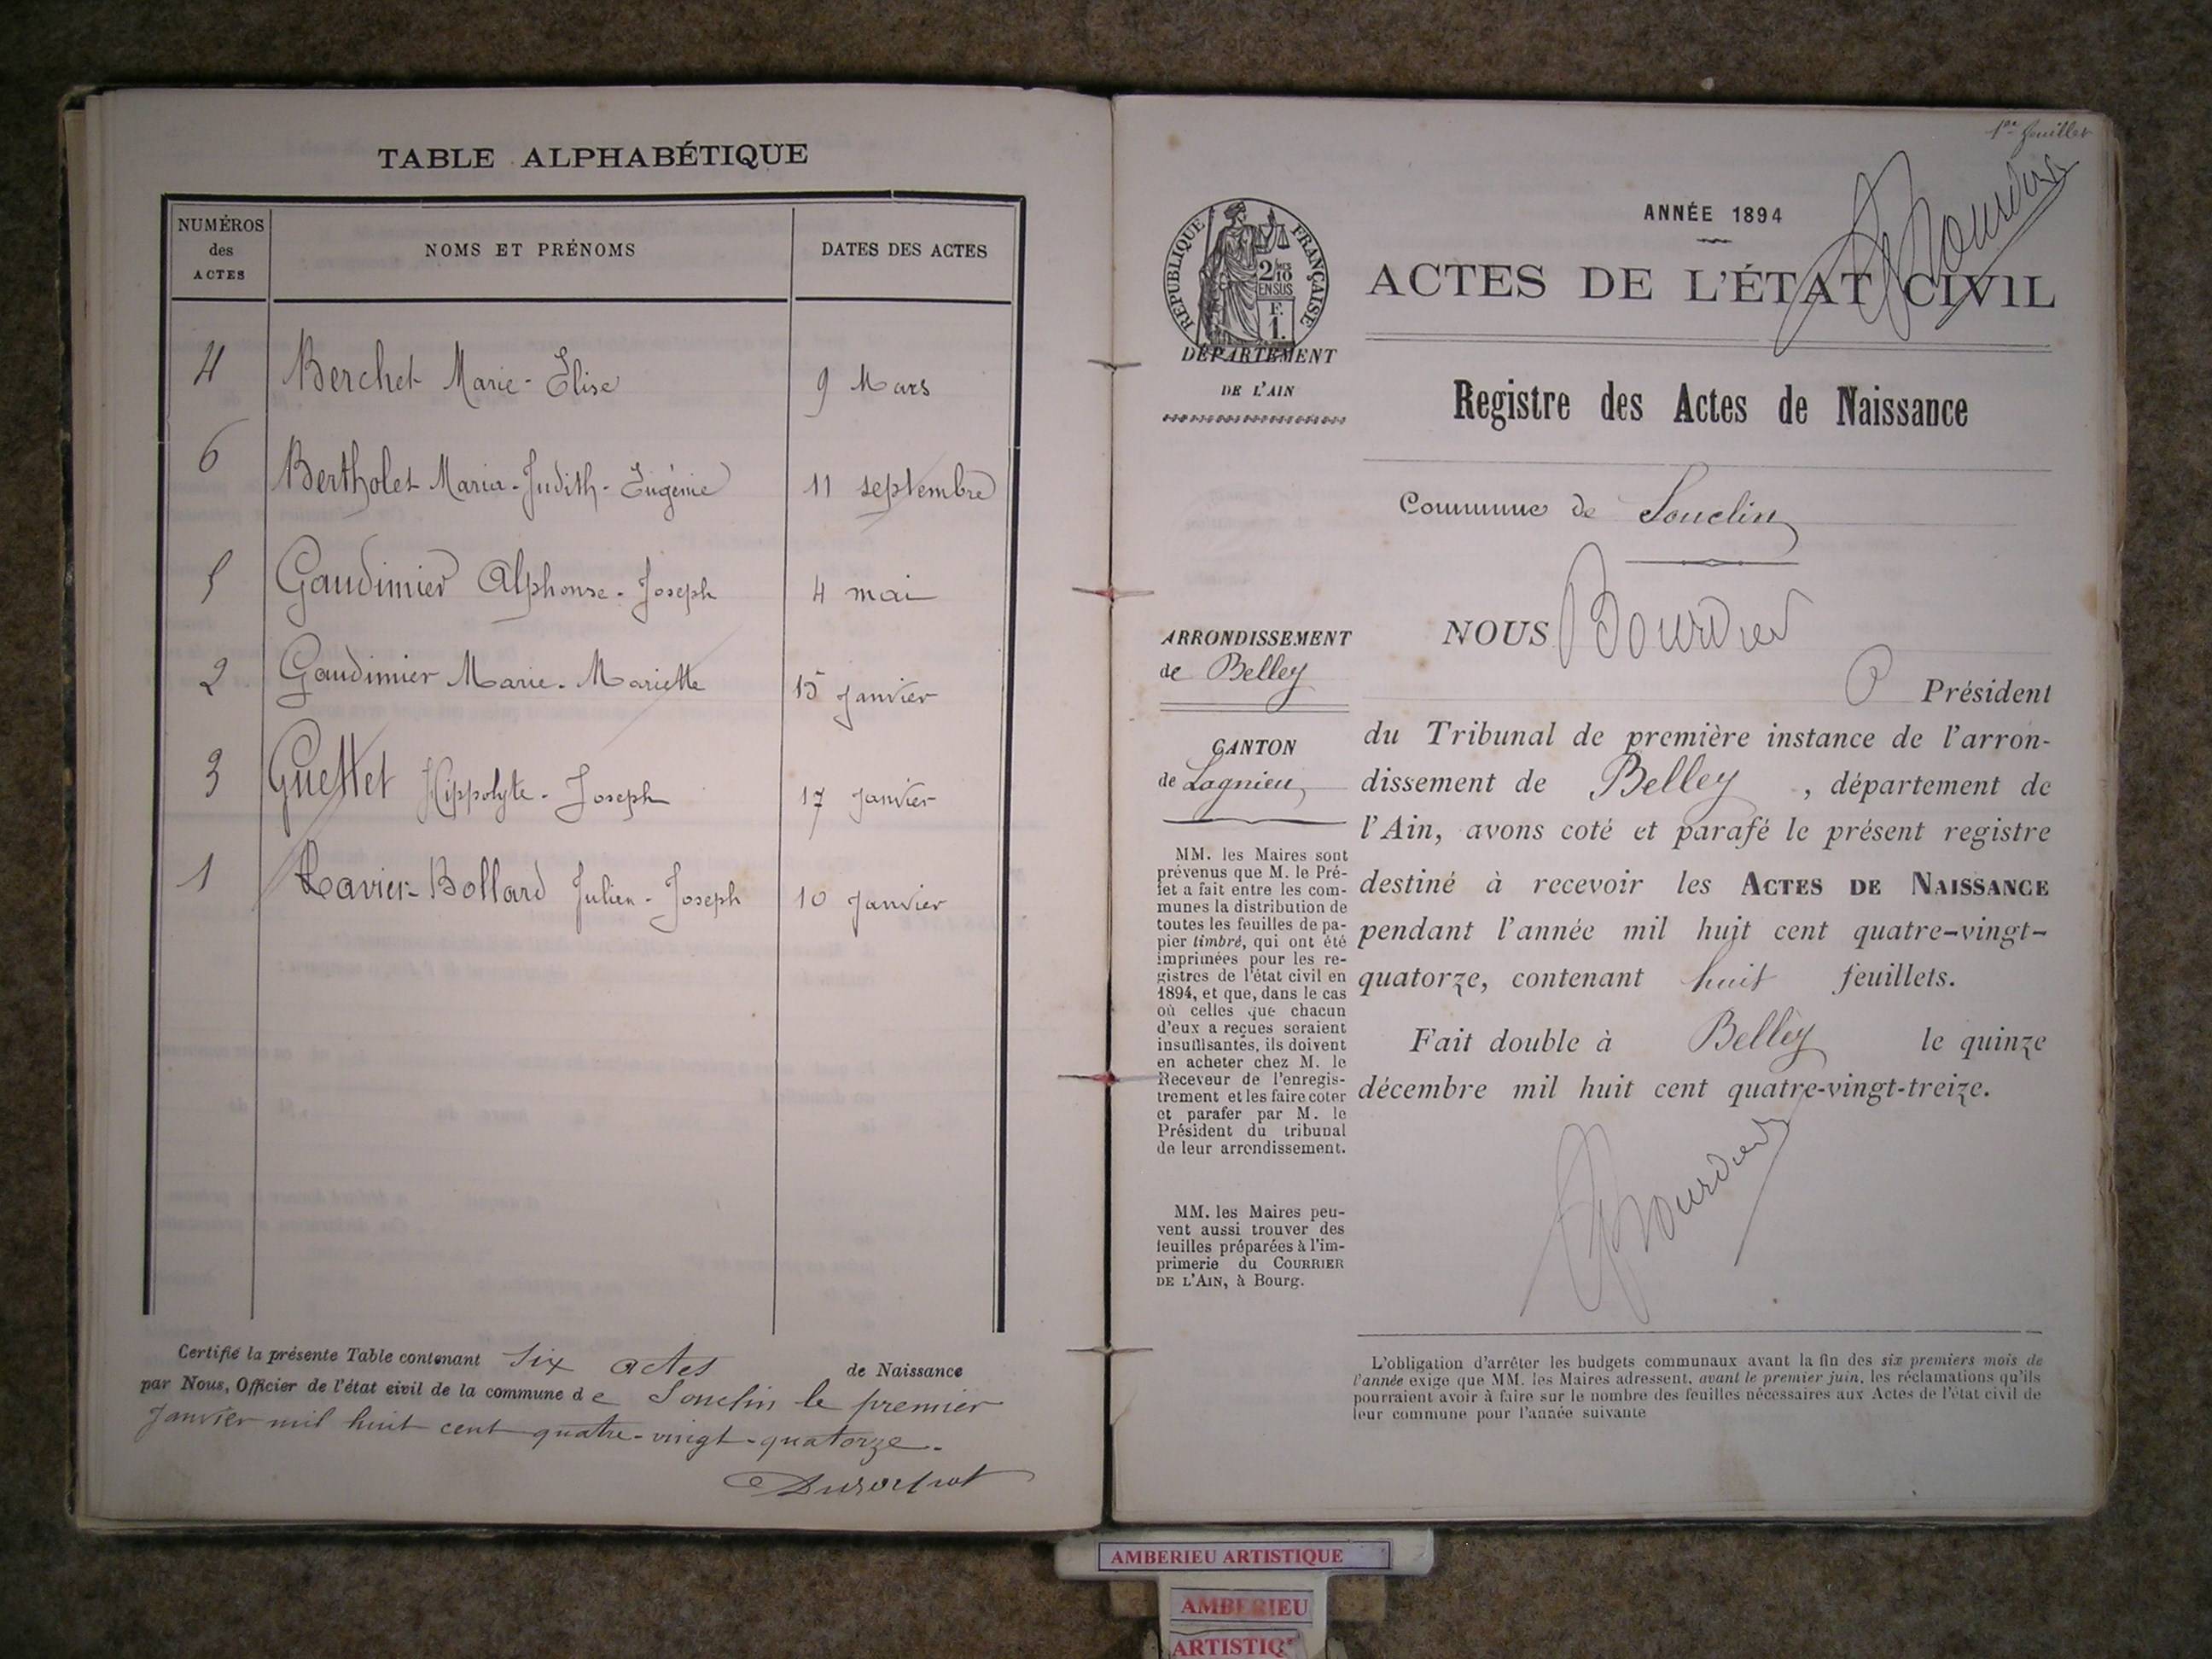 TABLE ALPHABÉTIQUE
NUMÉROS des ACTES
NOMS ET PRÉNOMS
DATES DES ACTES
4 Berchet Marie-Élise 9 Mars
6 Bertholet Maria-Judith-Eugénie 11 septembre
5 Gaudimier Alphonse-Joseph 4 mai
2 Gaudimier Marie-Mariette 15 janvier
3 Guettet Hippolyte-Joseph 17 janvier
1 Ravier-Bollard Julien-Joseph 10 Janvier
Certifié la présente Table contenant six actes de Naissance
par Nous, Officier de l'état civil de la commune de Souclin le premier
Janvier mil huit cent quatre-vingt-quatorze.
1er feuillet
Bourdier
ANNÉE 1894
ACTES DE L'ÉTAT CIVIL
RÉPUBLIQUE FRANÇAISE
2/10 MES
EN SUS
F.
1.
DÉPARTEMENT
DE L'AIN
Registre des Actes de Naissance
Commune de Souclin
ARRONDISSEMENT
de Belley
CANTON
de Lagnieu
MM. les Maires sont
prévenus que M. le Pré-
fet a fait entre les com-
munes la distribution de
toutes les feuilles de pa-
pier timbré, qui ont été
imprimées pour les re-
gistres de l'état civil en
1894, et que, dans le cas
où celles que chacun
d'eux a reçues seraient
insuffisantes, ils doivent
en acheter chez M. le
Receveur de l'enregis-
trement et les faire coter
et parafer par M. le
Président du tribunal
de leur arrondissement.
MM. les Maires peu-
vent aussi trouver des
feuilles préparées à l'im-
primerie du COURRIER
DE L'AIN, à Bourg.
NOUS Bourdier
P Président
du Tribunal de première instance de l'arron-
dissement de Belley, département de
l'Ain, avons coté et parafé le présent registre
destiné à recevoir les ACTES DE NAISSANCE
pendant l'année mil huit cent quatre-vingt-
quatorze, contenant huit feuillets.
Fait double à Belley le quinze
décembre mil huit cent quatre-vingt-treize.
Bourdier
L'obligation d'arrêter les budgets communaux avant la fin des six premiers mois de
l'année exige que MM. les Maires adressent, avant le premier juin, les réclamations qu'ils
pourraient avoir à faire sur le nombre des feuilles nécessaires aux Actes de l'état civil de
leur commune pour l'année suivante
AMBERIEU ARTISTIQUE
AMBERIEU
ARTISTIQ